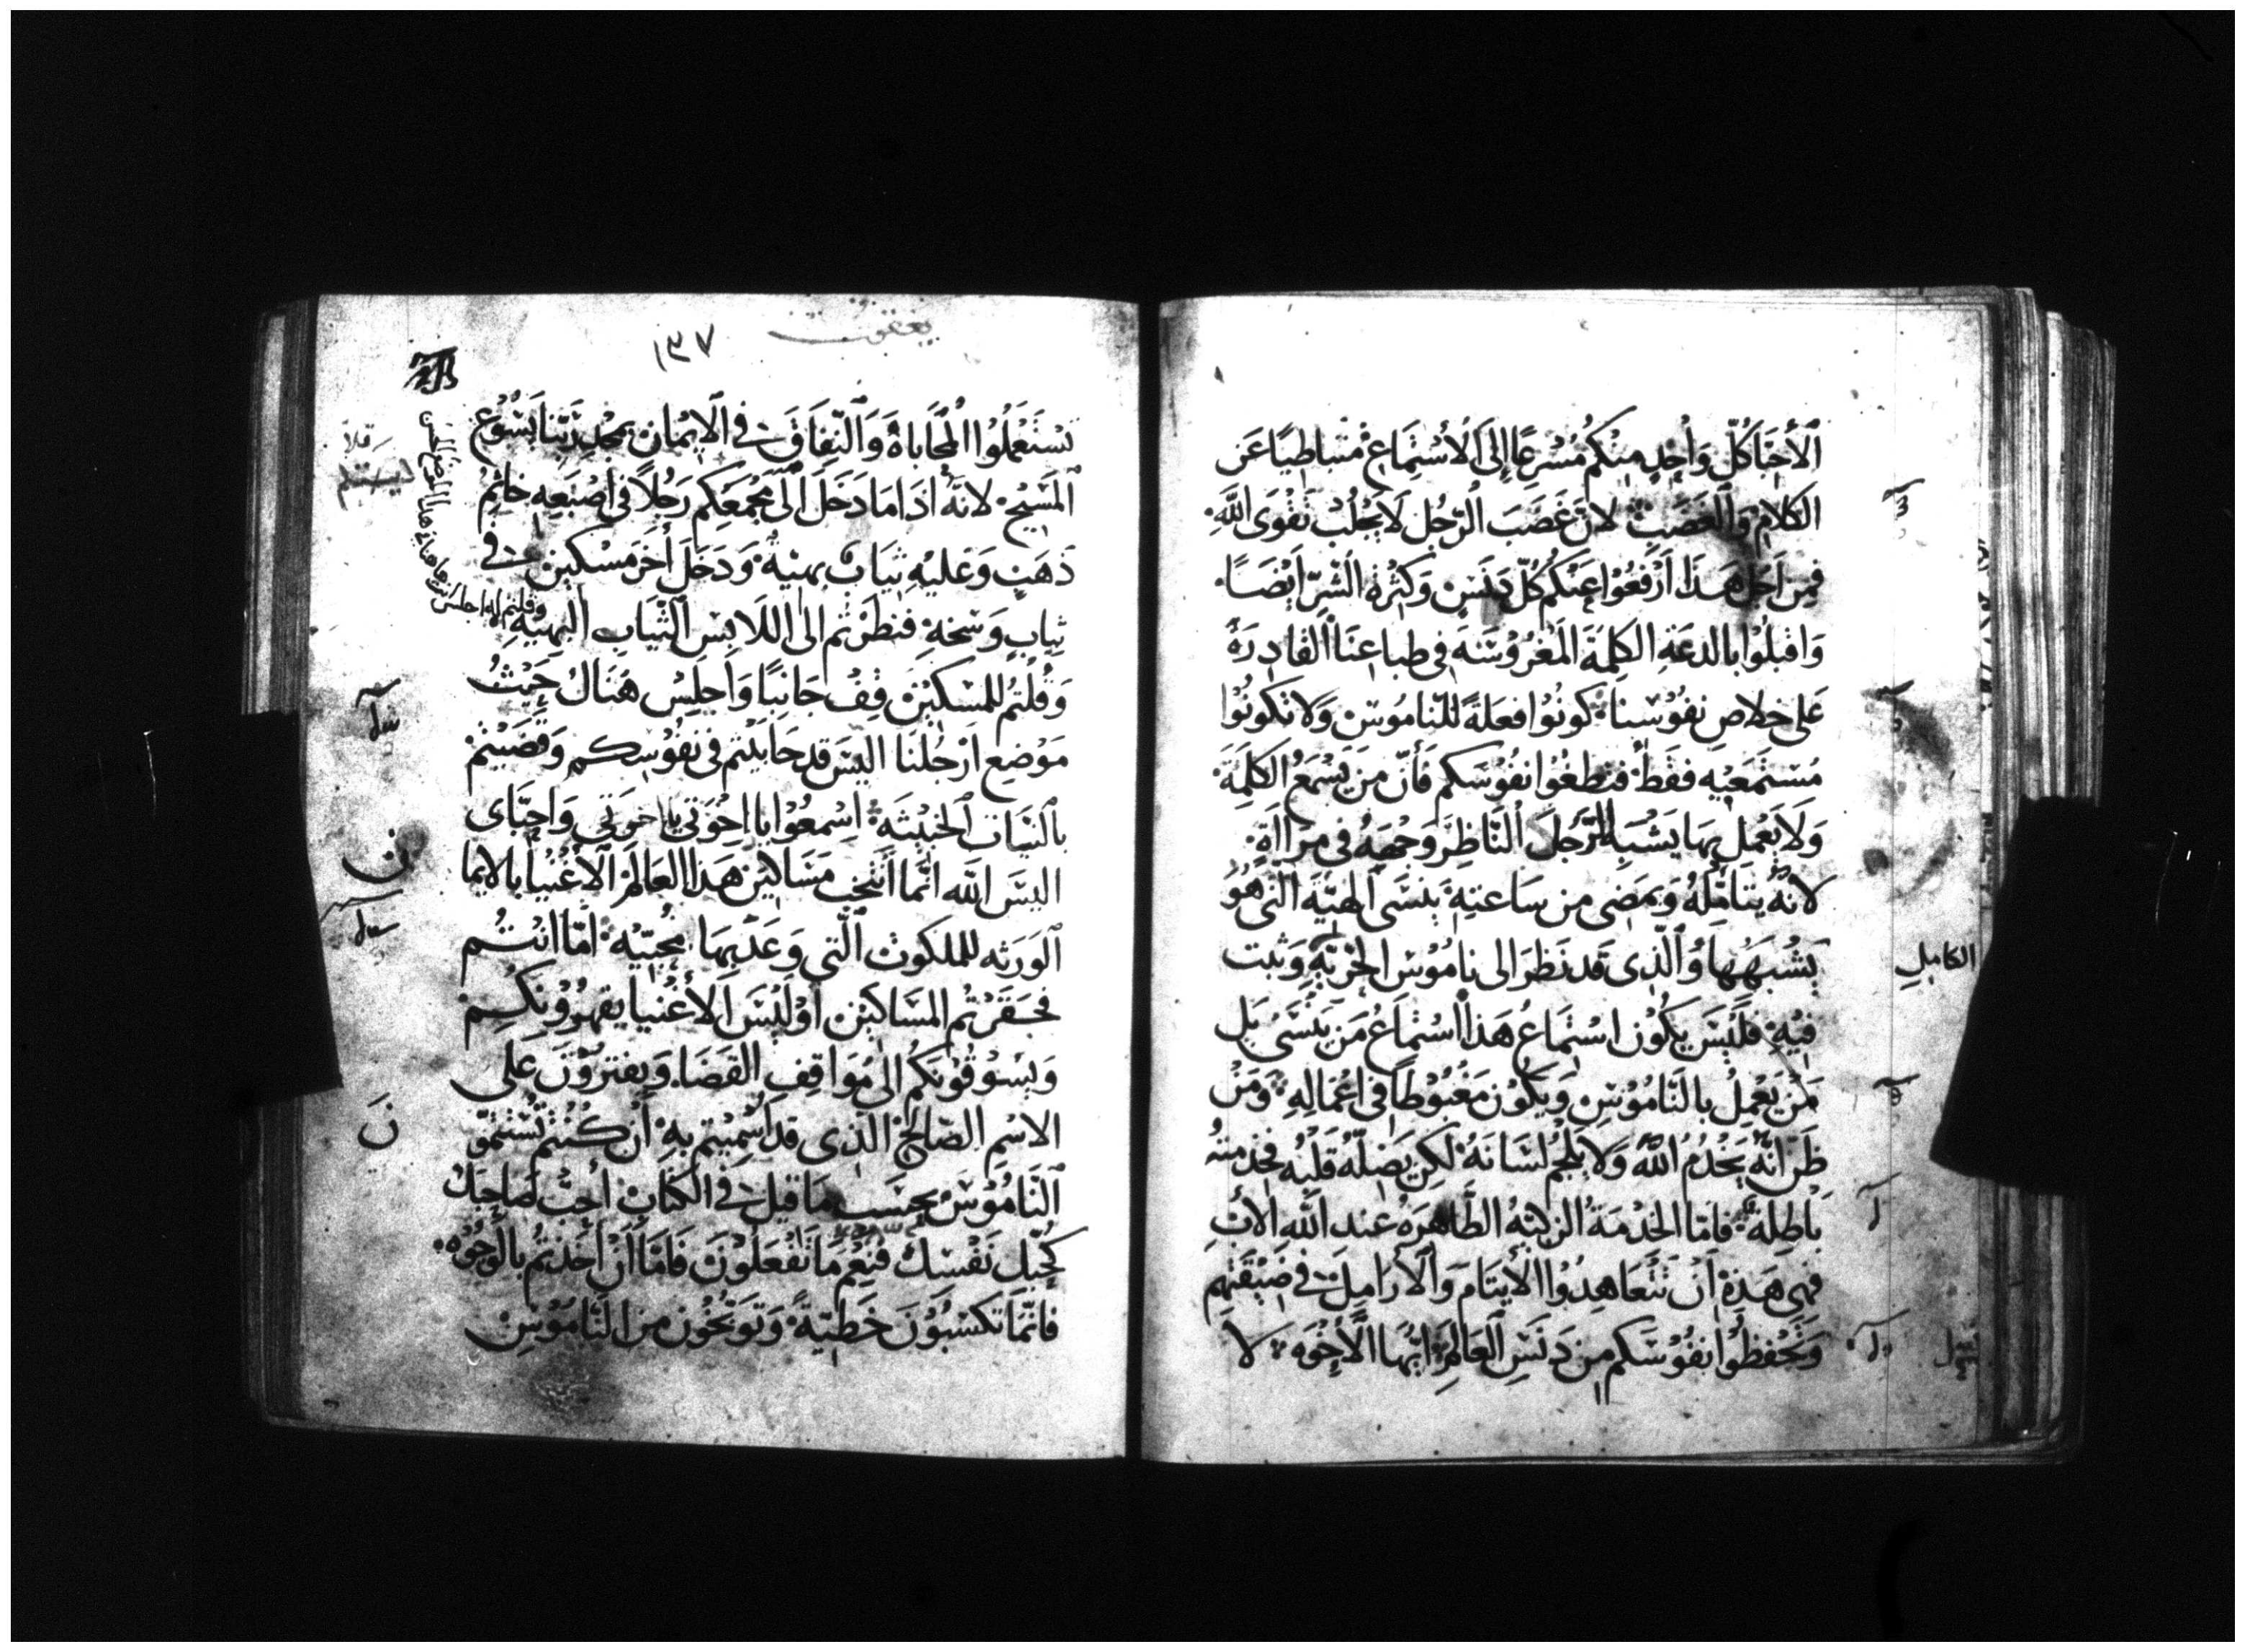 الأحِبّا كُلّ وَاحِدٍ مِنكُم مُسْرِعًا إلَى الأسْتِمَاع مُتباطِيًا عَن
الكَلام وَالغَضَب لانّ غَضَبَ الرّجُل لَا يَجْلُبْ تَقْوَى اللَّهِ
فمِن اَجل هَذَا اَرْفَعُوْا عَنكُم كُلّ دَنَسٍ وَكثرة الشّرّ اَيْضَا
وَاقبلُوا بالدعَةِ الكلِمَة المَغرُوْسَه في طباعنَا القادِرَة
عَلى خلاصِ نفُوْسنا كونُوا فعَلةً للنّامُوس وَلا تكونُوْا
مُسْتَمعيْهِ فقَط فتطغُوا نفُوْسَكم فَأنّ مَن يَسْمَعُ الكَلِمَة
وَلا يَعْمل بهَا يَشْبه الرَّجُلَ النَّاظِر وَجْهَهُ فى مرااة
لانّهُ يتأمّلهُ وَيمَضى من سَاعتِهِ يَنسَى الهيّة الّتى هُوَ
يَشْبَهُهَا وَالّذى قد نَظرَ الى نامُوْس الحرّيّةِ وَثبت
فيْهِ فلَيْسَ يكُون اسْتماعُ هَذا اسْتماعُ مَن يَنْسَىْ بَل
مَنْ يَعْمل بالنَّامُوْسِ وَيكون مَغْبُوطاً فى اعْمالِهِ وَمَنْ
ظَنّ انّه يَخْدُمُ اللّه وَلا يلجُم لسَانَهُ لكِن يَضلّهُ قلبُه فخدمتهُ
بَاطِلة فامّا الخدْمَةُ الزكيّه الطّاهِرَهُ عند اللّه الأبِ
فهى هَذِهْ اَنْ تتعَاهِدُوا الأيتَام وَالأرَامِل فى ضِيْقَتهم
وَتَحْفظُوا نفُوْسَكم مِن دَنَسِ العَالم ايّهَا الأخوَه لا
الكامِل
يعقوب
١٣٧
تسْتَعْملُوا المحَاباة وَالنّفاقَ في الايْمان بمَجْدِ رَبّنا يَسُوْع
المَسيْح لانّهُ اذَا مَا دَخَلَ الَى مَجْمَعكم رَجُلاً فى اصْبَعِهِ خاتِمُ
ذهَبٍ وَعَليْهِ ثيَابٌ بهيّةُ وَدَخَلَ أخَر مسْكينْ في
ثيابٍ وَسَخهِ فنظرْتم الى اللَابِس الثّيَاب البَهيّهِ
وقلتم له اجلس
وَقُلتُم للمسْكيْن قِفْ جَانِبًا وَاَجلِسْ هُنَاكْ حَيْثُ
مَوْضع اَرْجُلنَا اليْسَ قد حَابَيْتم فى نفُوْسِكم وَقضَيْتمْ
بالنيَات الخبيْثَة اسْمعُوْا يا اخْوَتى وَاحِبّاى
اليْسَ اللّه انّما انتخِب مسَاكيْن هَذا العَالم الأغْنيا بالايما
ن
الوَرَثه للملكوت الّتي وَعَدَ بهَا محبّيْه امّا انتُم
فحَقَرْتُم المسَاكيْن اوْلَيْسَ الأغْنيا يقهرُوْنكم
وَيَسُوْقُوْنَكُم الى مَوَاقِفِ القَضَا وَيفترُوْنَ عَلى
الاسْمِ الصّالح الذى قد اسْميتم بهِ اَنْ كُنْتُم تُتمّو
نَ
النَّامُوْسَ بحسَب مَا قيل في الكتاب أحِبّ لصَاحِبَكْ
كحُبّك نَفْسَكْ فنِعْم مَا تفْعَلوْنَ فَامّا اَنْ اَخذتم بالوجُوْه
فانّما تكسْبُوْنَ خَطيّةً وَتوَبّخُون من النَّامُوْسِ